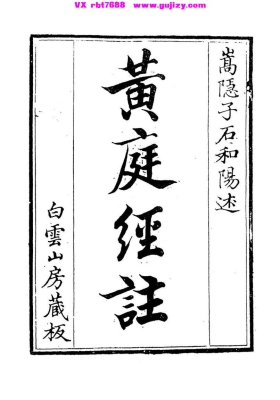 VX rbt7688 www.gujizy.com
嵩隱子石和陽述
黃庭經註
白雲山房蔵板